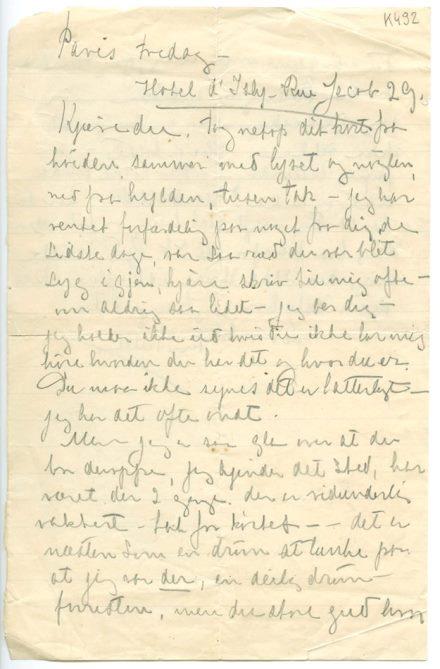 K492
Paris Fredag –
Hotel d'Isly – Rue Jacob 29.
Kjære du, Tog netop dit kort fra
hveden, sammen med lyset og nøglen,
ned fra hylden, tusen tak – jeg har
ventet forfærdelig paa noget fra dig, de
sidste dage, var saa ræd du var blet
syg igjen, kjære skriv til mig ofte –
om aldrig saa lidet – jeg ber dig –
jeg holder ikke ud hvis du ikke lar mig
høre hvordan du har det og hvor du er.
Du maa ikke synes det er latterligt –
jeg har det ofte ondt.
Men jeg er saa gla over at du
bor deroppe, jeg kjender det sted, har
været der 2 gange. der er vidunderlig
vakkert – tak for kortet – – det er
næsten som en drøm at tænke paa
at jeg var der, en deilig drøm –
forresten, men du store gud hvor